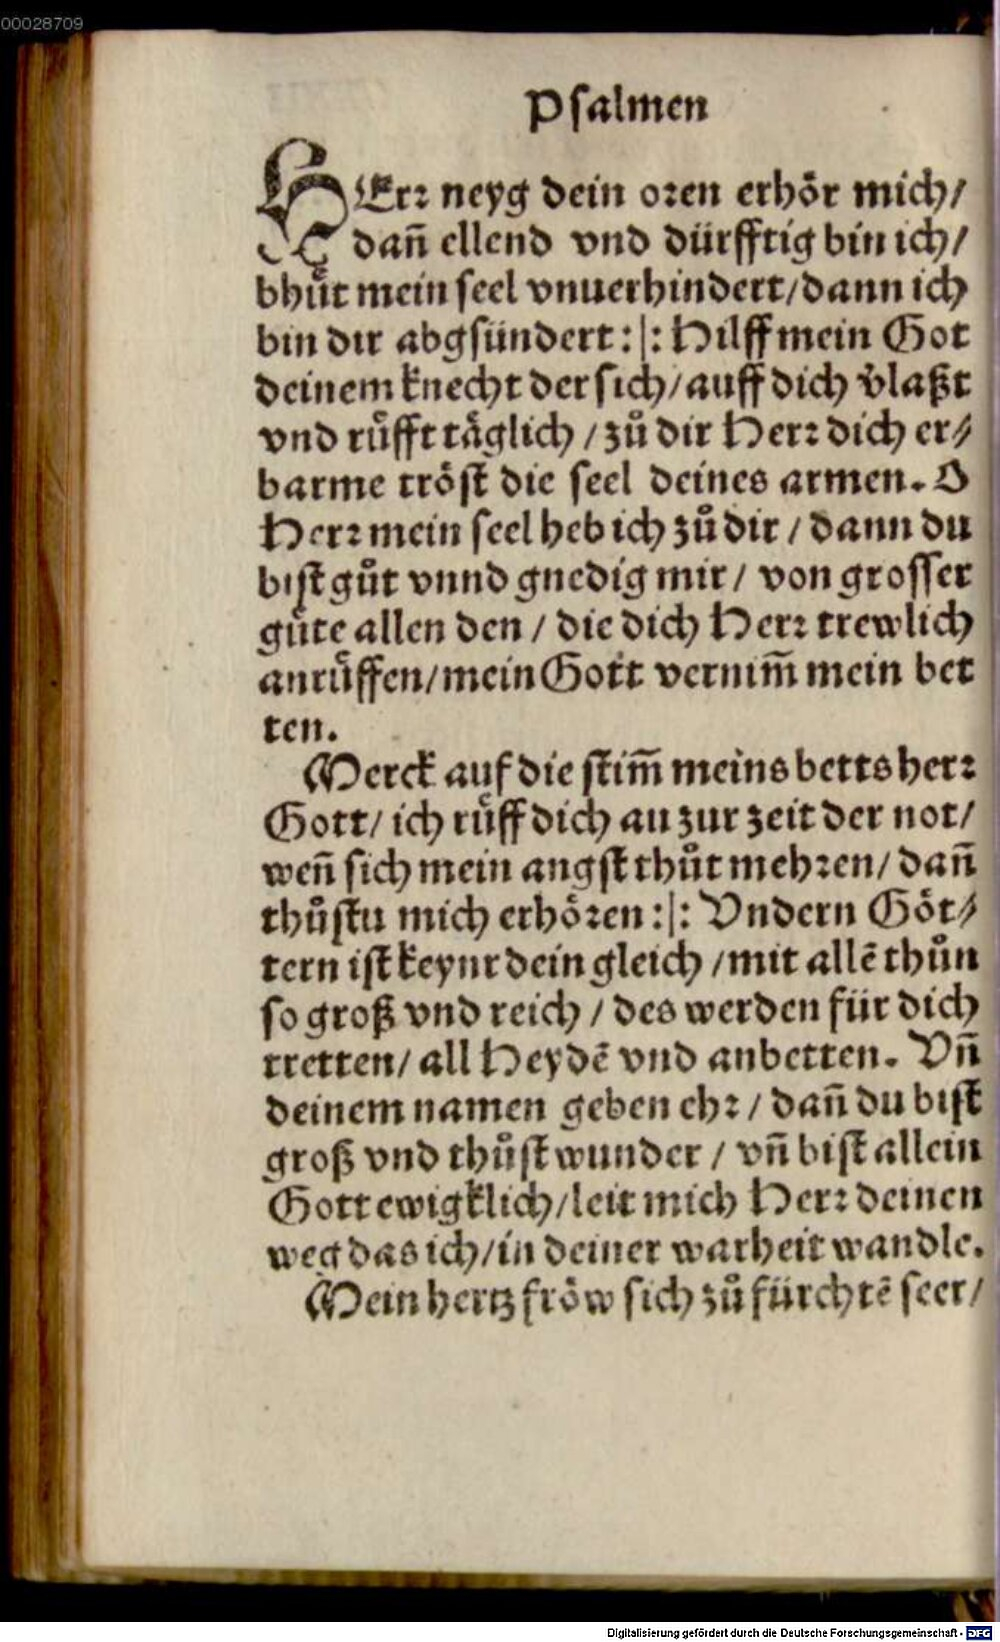 00028709
Psalmen
HErꝛ neyg dein oꝛen erhör mich/
dañ ellend vnd dürfftig bin ich/
bhüt mein seel vnuerhindert/dann ich
bin dir abgsündert:|: Hilff mein Got
deinem knecht der sich/auff dich v̈laßt
vnd rüfft täglich / zů dir Herꝛ dich er⸗
barme tröst die seel deines armen. O
Herꝛ mein seel heb ich zů dir / dann du
bist gůt vnnd gnedig mir / von grosser
güte allen den / die dich Herꝛ trewlich
anrüffen/mein Gott vernim̃ mein bet
ten.
Merck auf die stim̃ meins betts herꝛ
Gott/ ich rüff dich an zur zeit der not/
weñ sich mein angst thůt mehꝛen/ dañ
thůstu mich erhöꝛen:|: Vndern Göt⸗
tern ist keynr dein gleich /mit allẽ thůn
so groß vnd reich / des werden für dich
tretten/ all Heydẽ vnd anbetten. Vñ
deinem namen geben ehꝛ / dañ du bist
groß vnd thůst wunder / vñ bist allein
Gott ewigklich/leit mich Herꝛ deinen
weg das ich/in deiner warheit wandle.
Mein hertz fröw sich zů fürchtẽ seer/
Digitalisierung gefördert durch die Deutsche Forschungsgemeinschaft - DFG